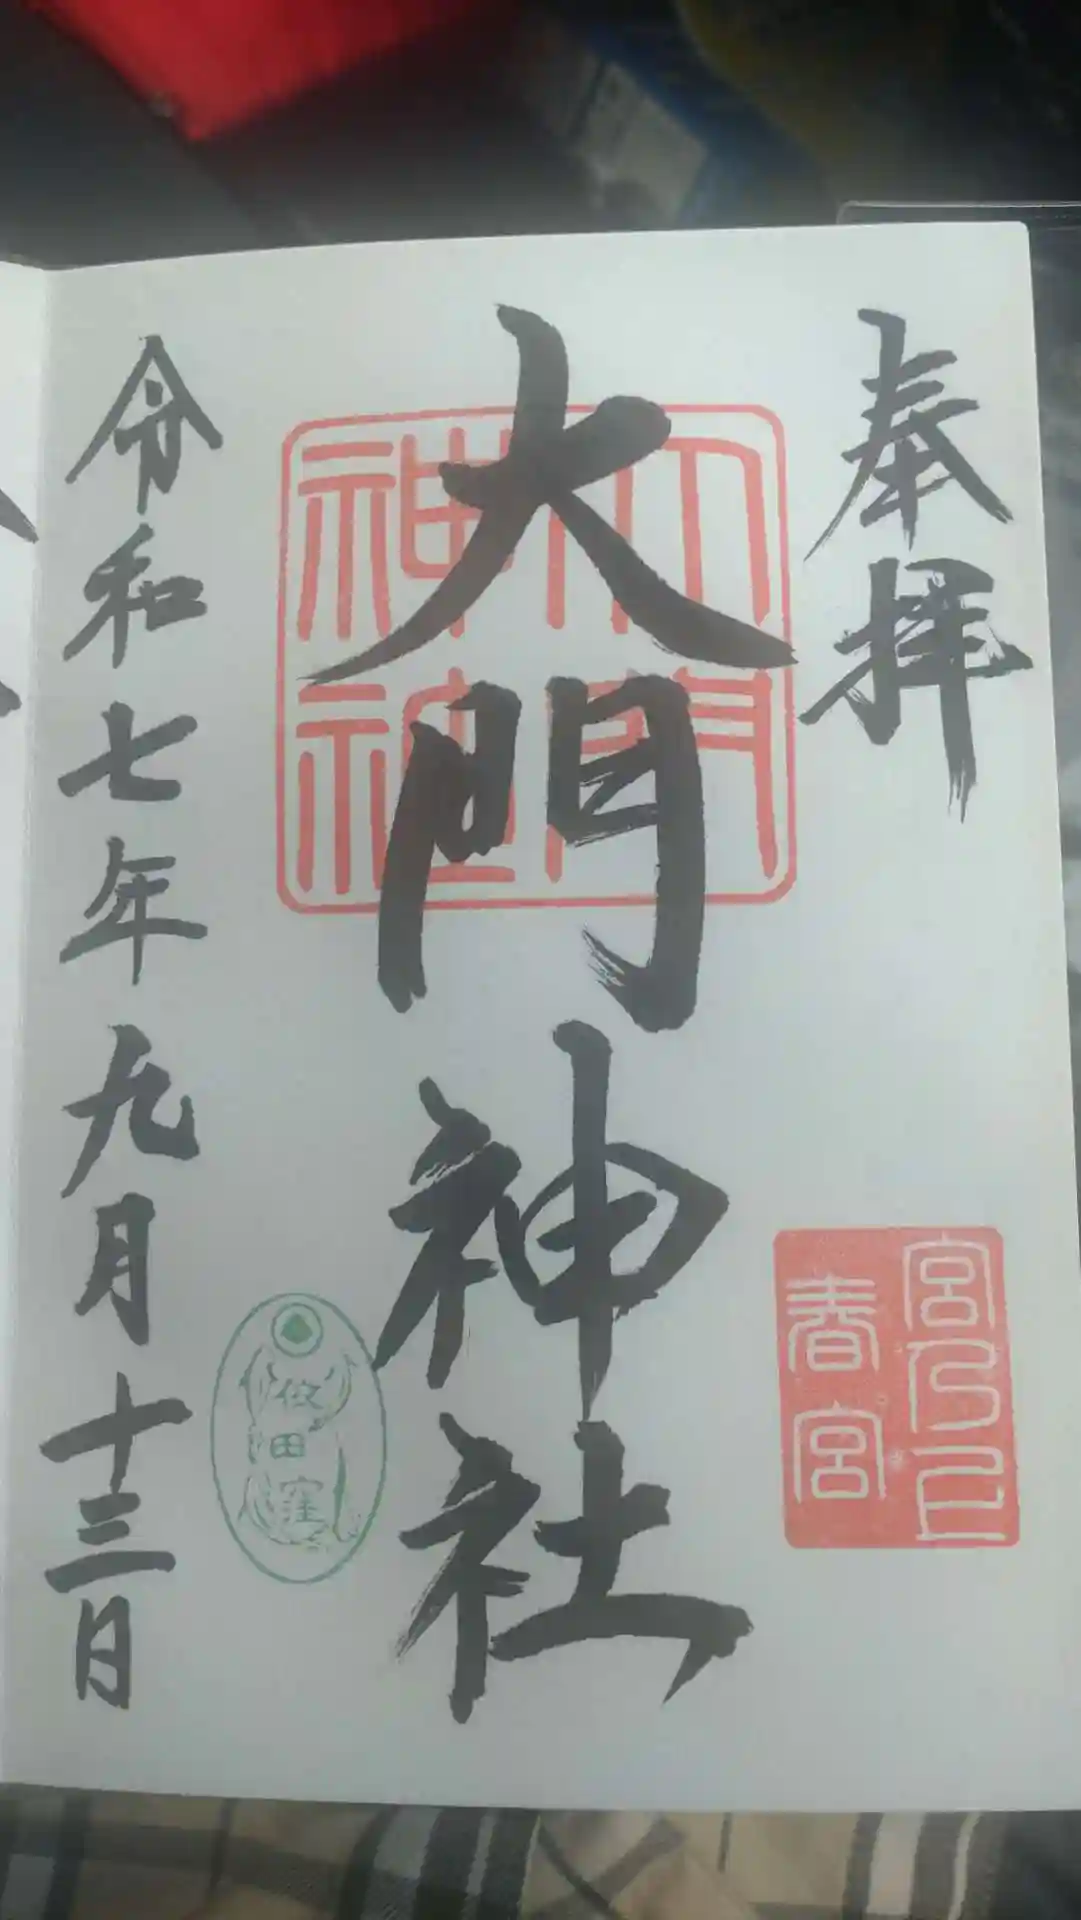 奉拝
宮乃上
春宮
大門神社
大門
神社
依田窪
令和七年九月十三日